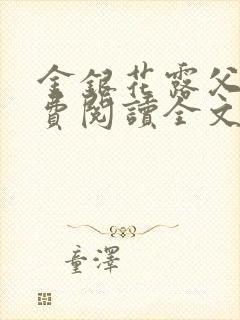 金銀花露父
費閱讀全文
童澤